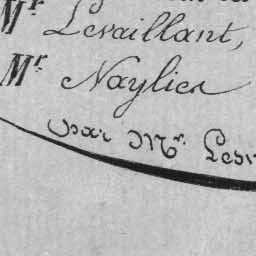 Mr Levaillant,
Mr Naylies
par Mr. Les